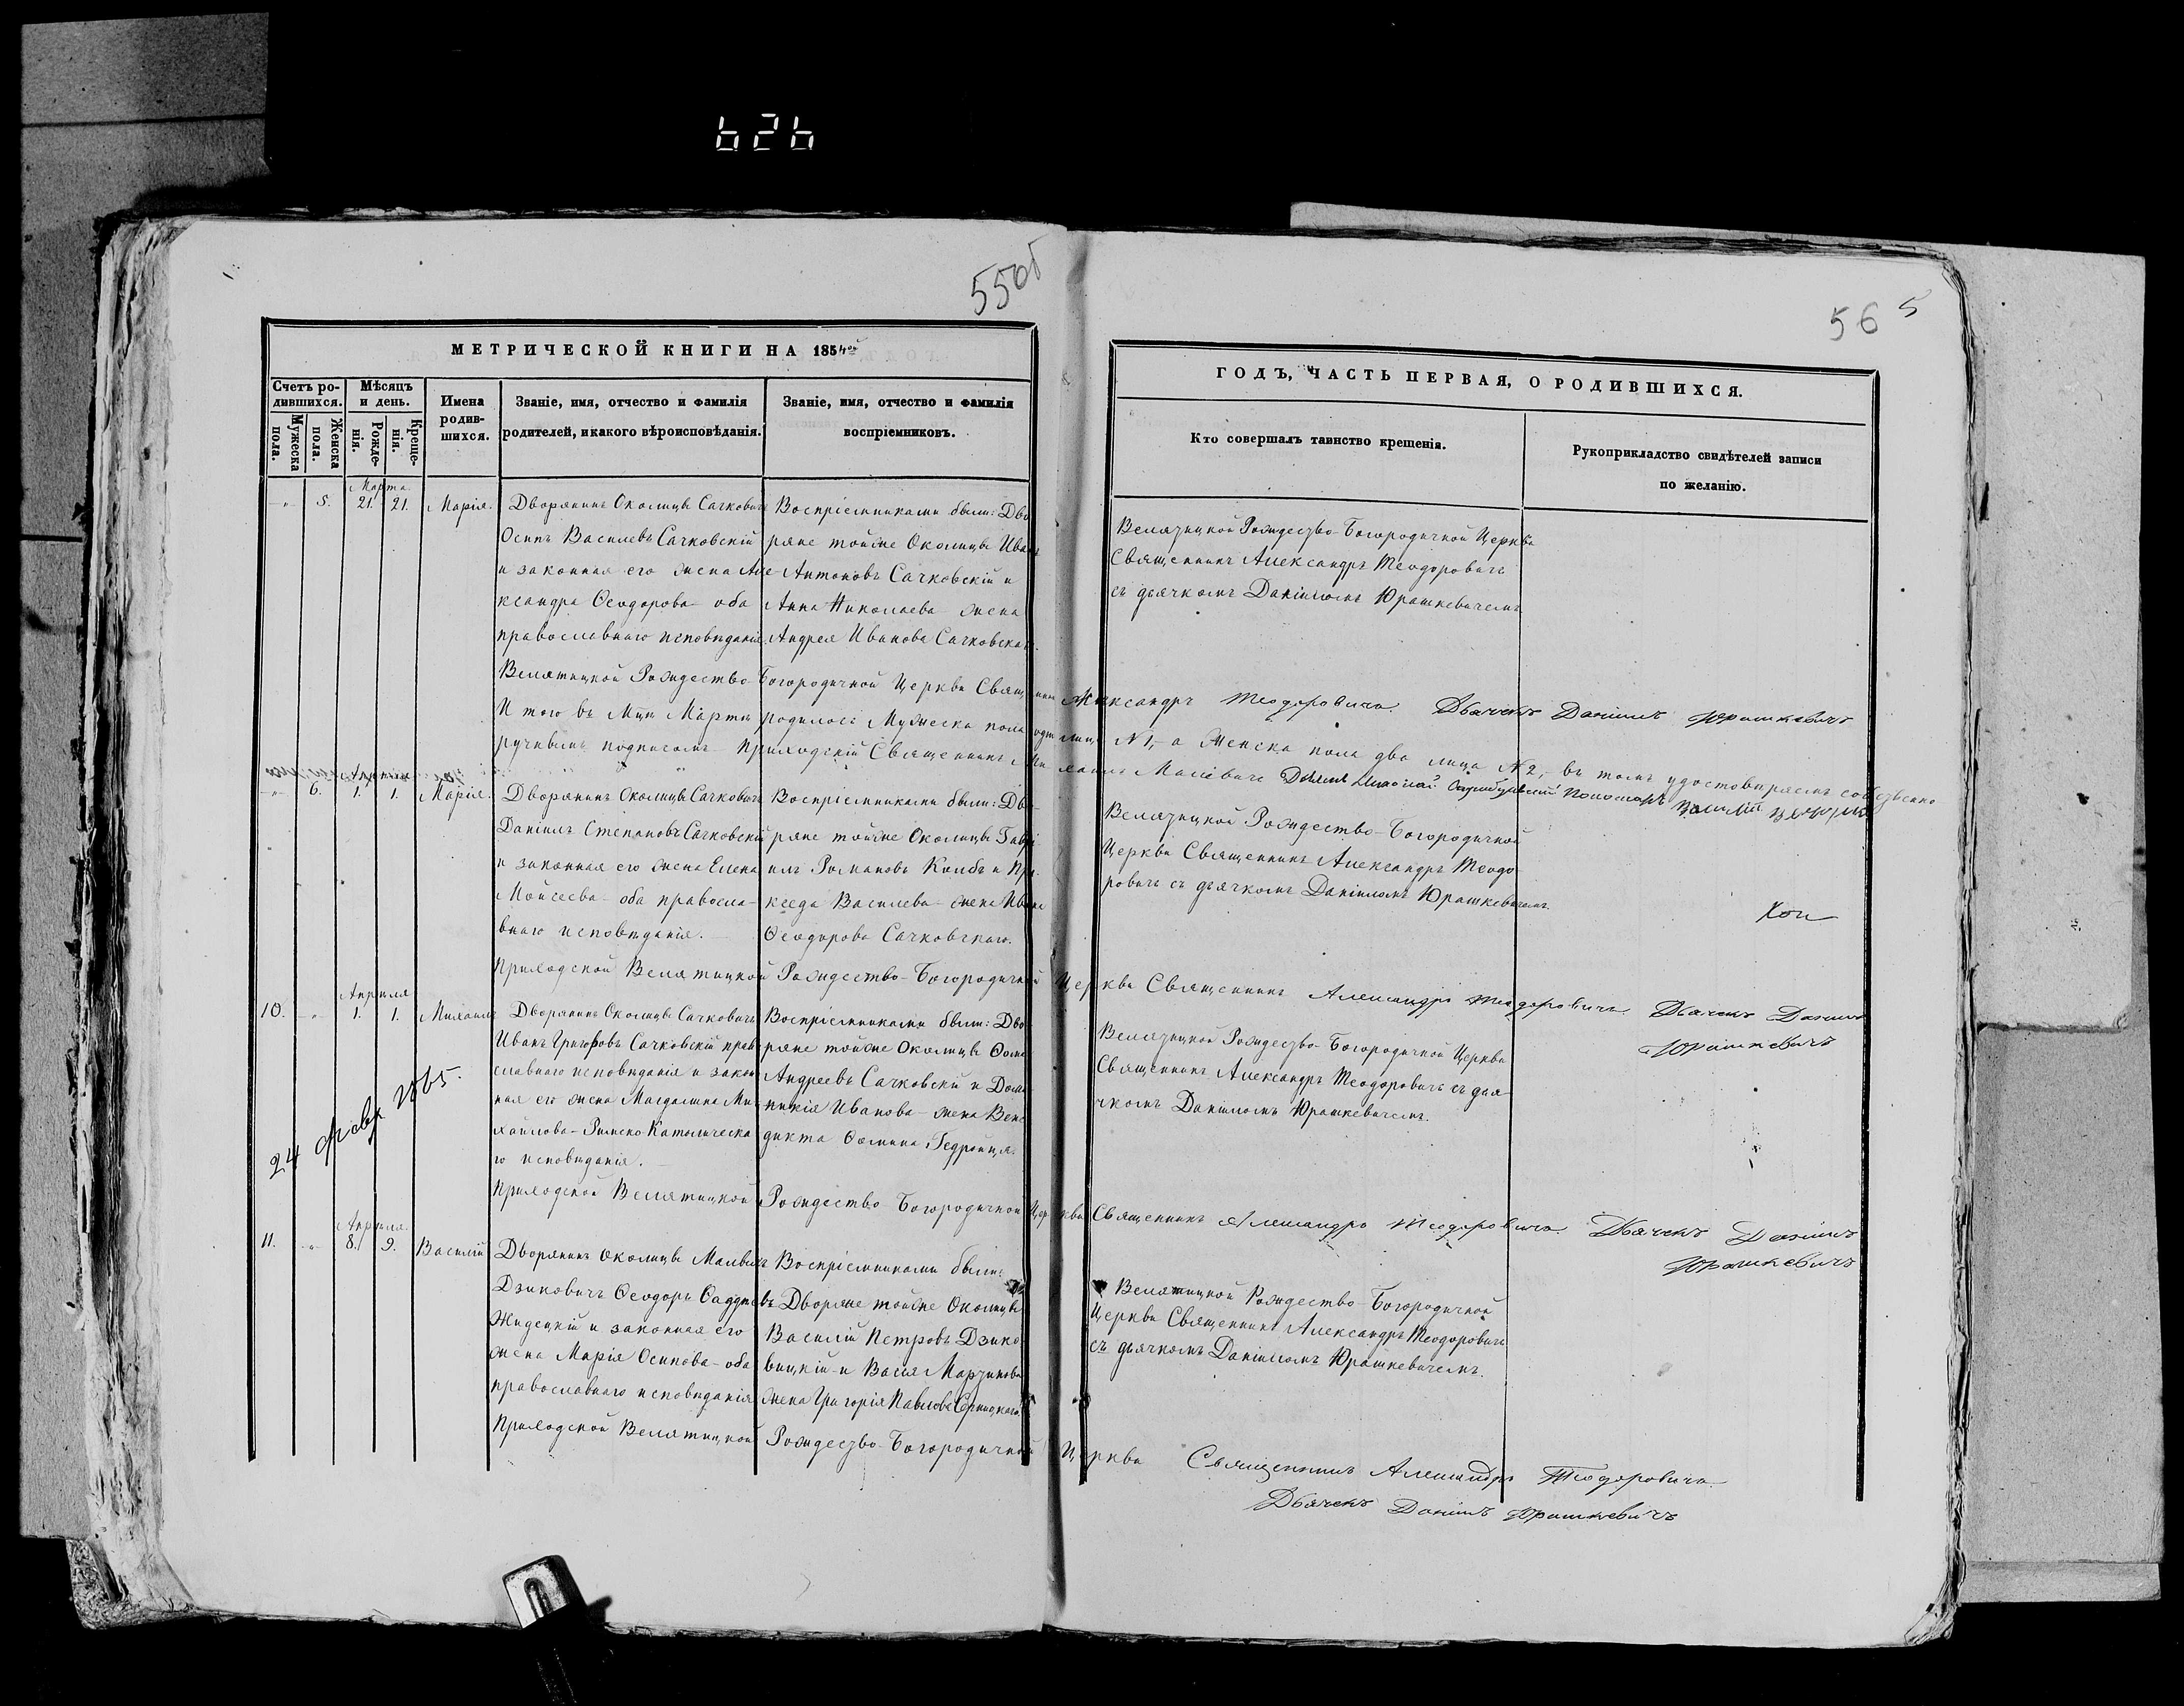 626
55об
56 5
МЕТРИЧЕСКОЙ КНИГИ НА 1854
ГОДЪ, ЧАСТЬ ПЕРВАЯ, О РОДИВШИХСЯ.
Счетъ ро-
дившихся.
Мужеска
пола.
Женска
пола.
Мѣсяцъ
и день.
Рожде-
нія.
Креще-
нія.
Имена
родив-
шихся.
Званіе, имя, отчество и фамилія
родителей, и какого вѣроисповѣданія.
Званіе, имя, отчество и фамилія
воспріемниковъ.
Кто совершалъ таинство крещенія.
Рукоприкладство свидѣтелей записи
по желанію.
Марта
„ 5. 21. 21. Марія.
Дворянинъ Околицы Сачковичъ
Осипъ Василевъ Сачковскій
и законная его жена Але-
ксандра Ѳеодорова оба
православнаго исповѣданія.
Воспріемниками были: Дво
ряне тойже Околицы Иванъ
Антоновъ Сачковскій и
Анна Николаева жена
Андрея Иванова Сачковскаго.
Велятицкой Рождество-Богородичной Церкви
Священникъ Александръ Теодоровичъ
съ дьячкомъ Даніиломъ Юрашкевичемъ
Велятицкой Рождество-Богородичной Церкви Священникъ Александръ Теодоровичъ. Дьячекъ Даніилъ Юрашкевичъ
И того въ Мцѣ Мартѣ родилось Мужеска пола одно лице №1, а Женска пола два лица №2, въ томъ удостовѣряемъ собственно
ручнымъ подписомъ Приходскій Священникъ Михаилъ Малевичъ
Пономарь
Апрѣля
„ 6. 1. 1. Марія.
Дворянинъ Околицы Сачковичъ
Даніилъ Степановъ Сачковскій
и законная его жена Елена
Мойсеева оба правосла-
внаго исповѣданія.
Воспріемниками были: Дво-
ряне тойже Околицы Гаврі
илъ Романовъ Колбъ и Пра-
кседа Василева жена Ивана
Ѳеодорова Сачковскаго.
Велятицкой Рождество-Богородичной
Церкви Священникъ Александръ Теодо
ровичъ съ дьячкомъ Даніиломъ Юрашкевичемъ.
Приходской Велятицкой Рождество-Богородичной Церкви Священникъ Александръ Теодоровичъ. Дьячекъ Даніилъ
Юрашкевичъ
Апрѣля
10. „ 1. 1. Михаилъ
Дворянинъ Околицы Сачковичъ
Иванъ Григоровъ Сачковскій право
славнаго исповѣданія и закон
ная его жена Магдалина Ми-
хайлова Римско Католическа
го исповѣданія.
Воспріемниками были: Дво
ряне тойже Околицы Ѳома
Андреевъ Сачковскій и Доми
никія Иванова жена Вене
дикта Ѳомина Гедройця.
Велятицкой Рождество-Богородичной Церкви
Священникъ Александръ Теодоровичъ съ дья
чкомъ Даніиломъ Юрашкевичемъ.
24 Февр 1865.
Приходской Велятицкой Рождество Богородичной Церкви Священникъ Александръ Теодоровичъ. Дьячекъ Даніилъ
Юрашкевичъ
Апрѣля.
11. „ 8. 9. Василій
Дворянинъ Околицы Малыхъ
Дзиковичъ Ѳеодоръ Ѳаддеевъ
Жидецкій и законная его
жена Марія Осипова оба
православнаго исповѣданія
Воспріемниками были:
Дворяне тойже Околицы
Василій Петровъ Дзико-
вицкій и Васія Мартинова
жена Григорія Павлова
Велятицкой Рождество-Богородичной
Церкви Священникъ Александръ Теодоровичъ
съ дьячкомъ Даніиломъ Юрашкевичемъ.
Приходской Велятицкой Рождество-Богородичной Церкви Священникъ Александръ Теодоровичъ.
Дьячекъ Даніилъ Юрашкевичъ